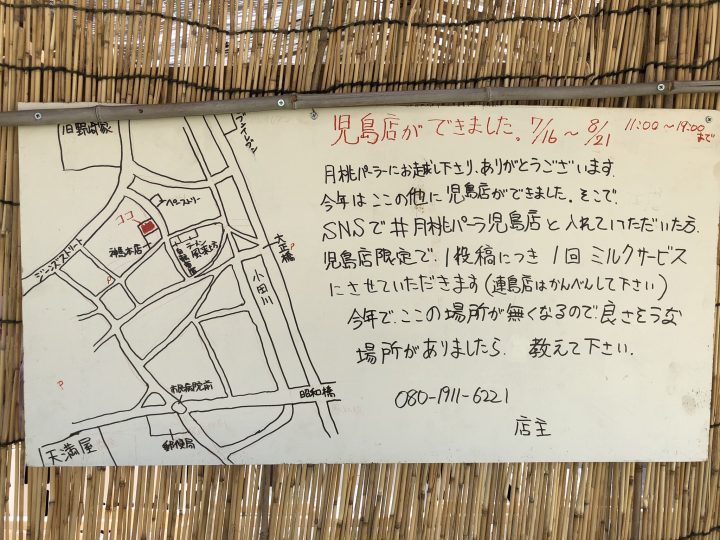 児島店ができました。7/16～8/21 11:00～19:00まで
月桃パーラーにお越し下さり、ありがとうございます。
今年はここの他に児島店ができました。そこで、
SNSで#月桃パーラー児島店と入れていただいた方、
児島店限定で、1投稿につき1回ミルクサービス
にさせていただきます(連島店はかんべんして下さい)
今年で、ここの場所が無くなるので、良さそうな
場所がありましたら、教えて下さい。
080-1911-6221
店主
旧野﨑家
ココ
ジーンズストリート
ラーメン
大正橋
小田川
昭和橋
市民病院前
郵便局
天満屋